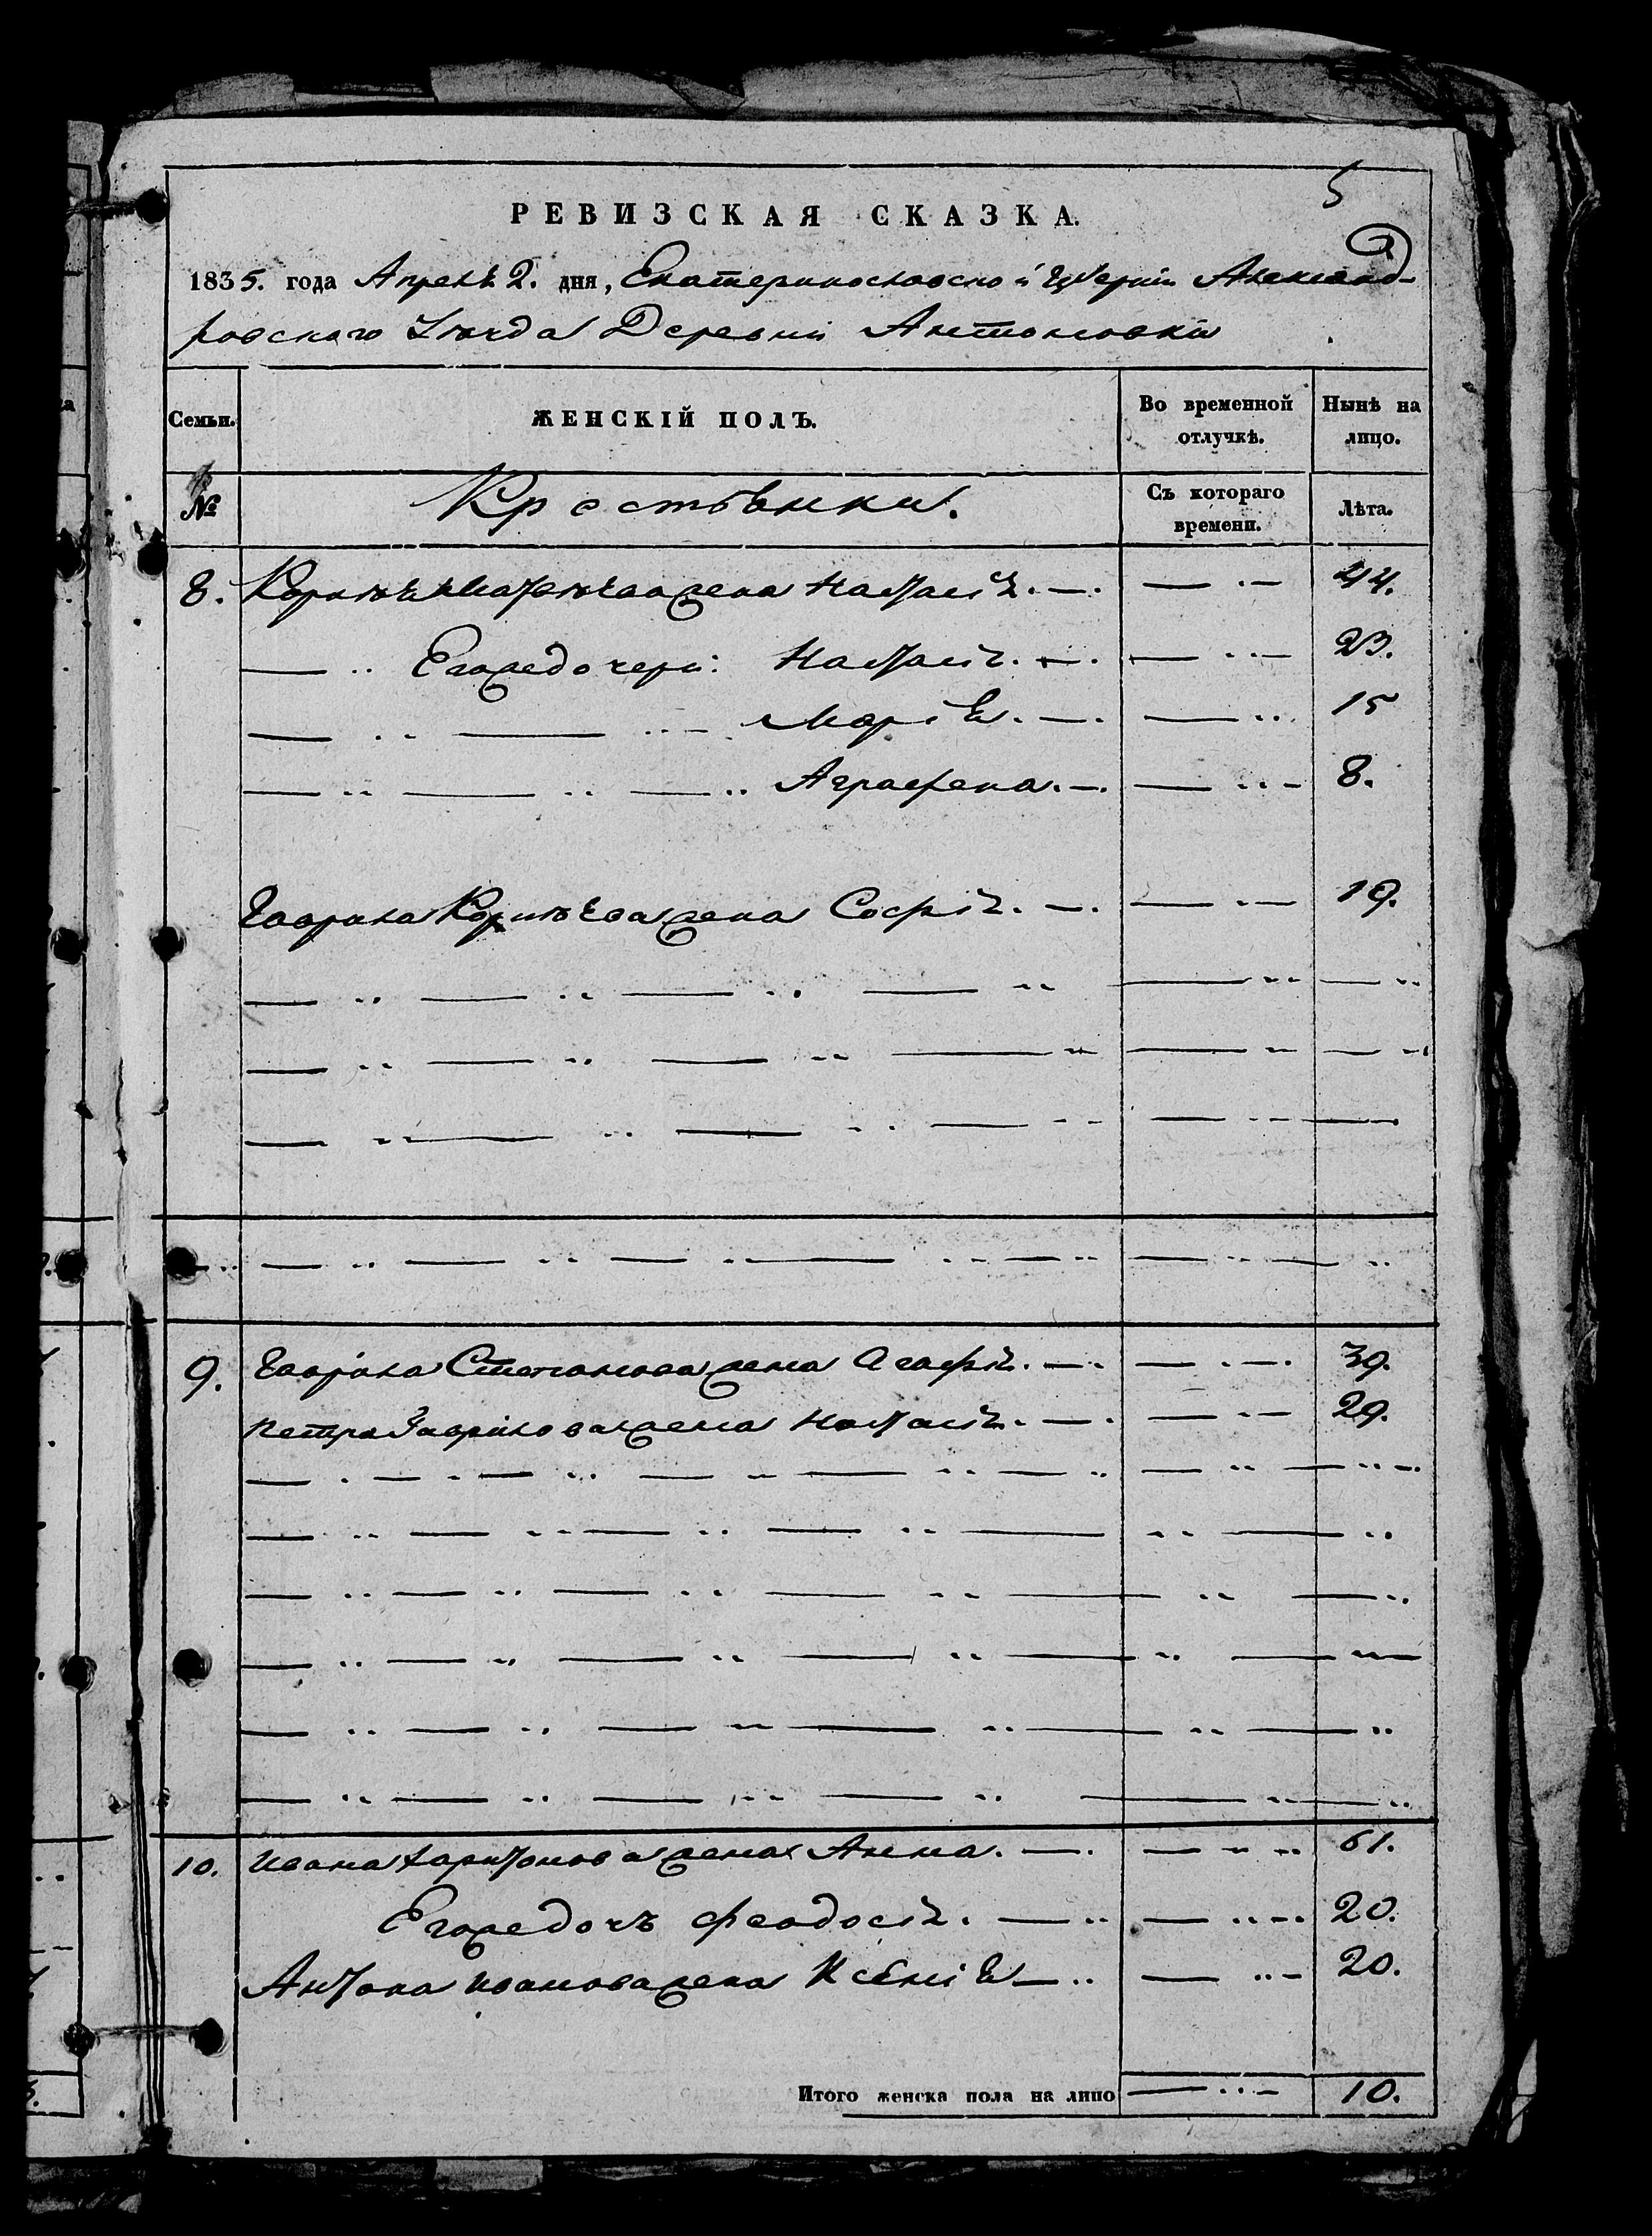 5
РЕВИЗСКАЯ СКАЗКА.
1835. года Апреля 2. дня, Екатеринославской Губернии Александ-
ровского Уезда Деревни Антоновки
Семьи. ЖЕНСКІЙ ПОЛЪ. Во временной отлучкѣ. Нынѣ на лицо.
№ Крестьянки. Съ котораго времени. Лѣта.
8. Корнея Матвеева жена Наталія. 44.
Его же дочери: Наталія. 23.
Марія. 15
Аграфена. 8.
Гаврила Корнеева жена Софія. 19.
9. Гаврила Степанова жена Агафія. 39.
Петра Гаврилова жена Наталія. 29.
10. Ивана Харитонова жена Анна. 61.
Его же дочь Феодосія. 20.
Антона Иванова жена Ксенія 20.
Итого женска пола на лицо 10.